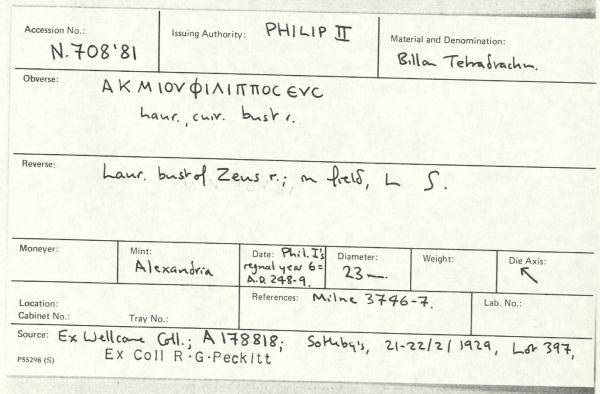 Accession No.: N.708'81
Issuing Authority: PHILIP II
Material and Denomination: Billon Tetradrachm.
Obverse: Α Κ Μ ΙΟΥ ΦΙΛΙΠΠΟС ЄΥС
Laur., cuir. bust r.
Reverse: Laur. bust of Zeus r.; in field, L S.
Moneyer:
Mint: Alexandria
Date: Phil. I's
regnal year 6=
A.D. 248-9.
Diameter: 23 mm.
Weight:
Die Axis: ↖
Location:
Cabinet No.: Tray No.:
References: Milne 3746-7.
Lab. No.:
Source: Ex Wellcome Coll.; A178818; Sotheby's, 21-22/2/1929, Lot 397,
P55298 (S) Ex Coll R.G.Peckitt